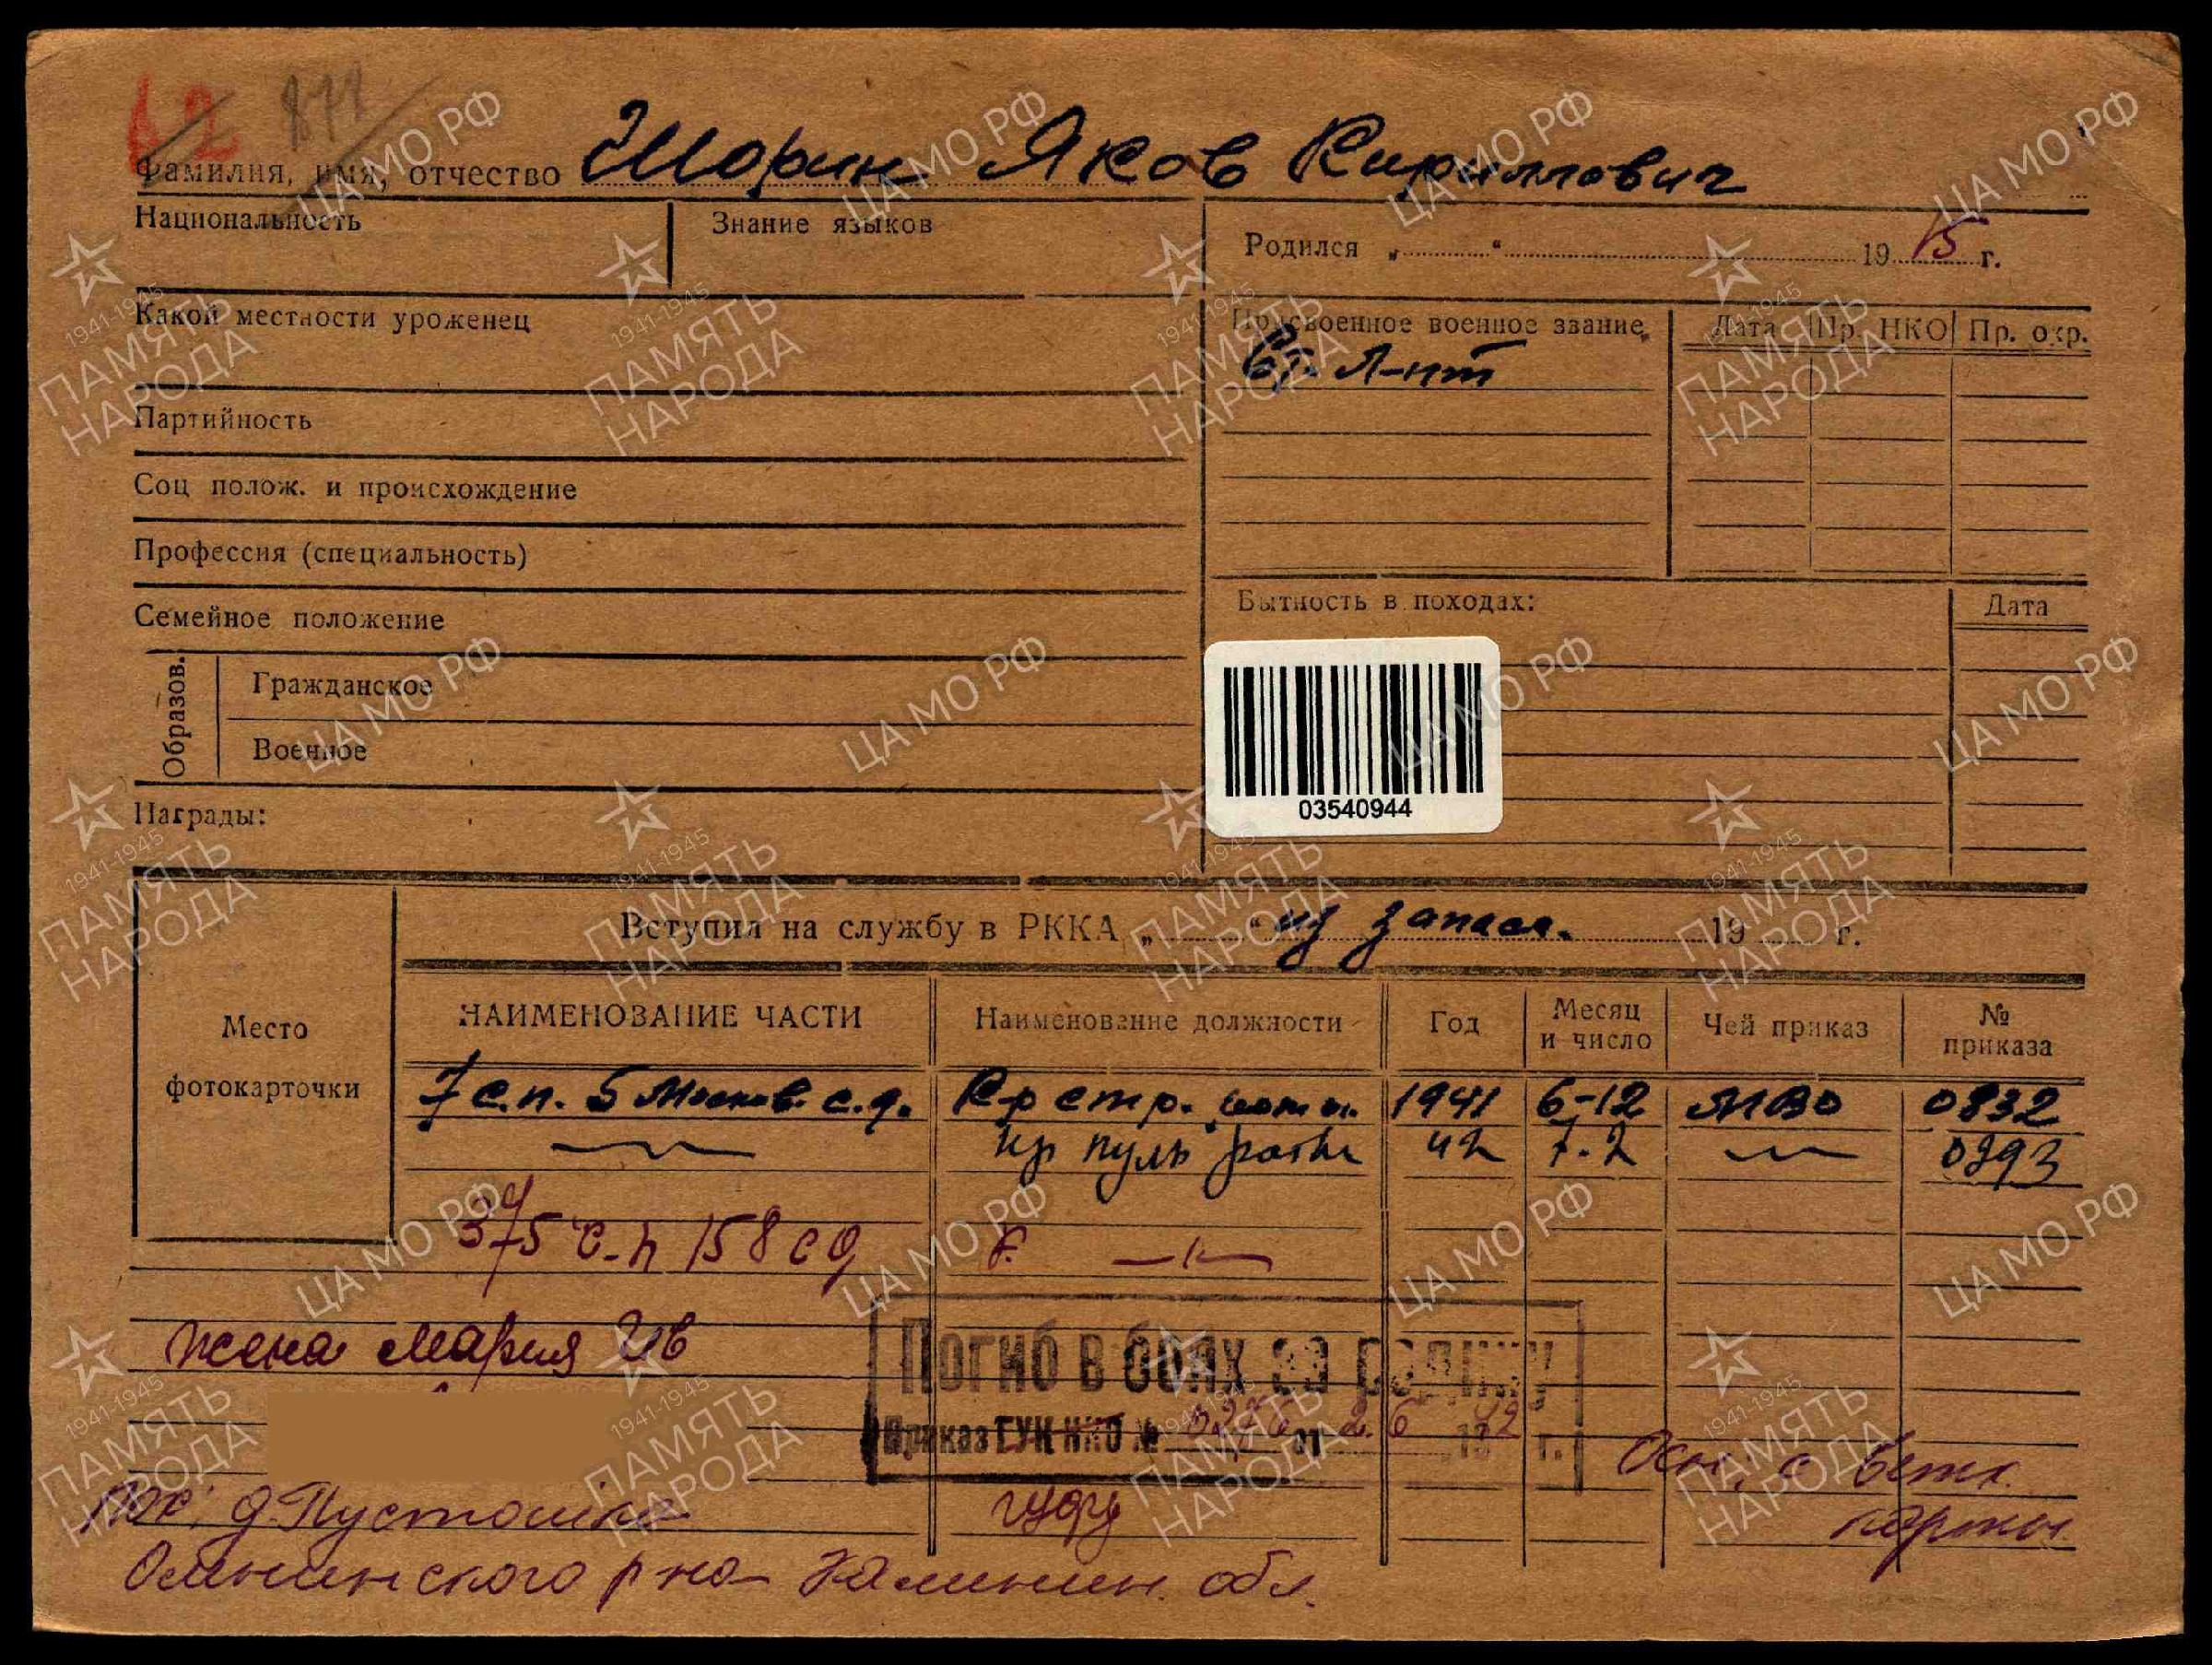 62 877
Фамилия, имя, отчество Шорин Яков Кириллович
Национальность Знание языков Родился „ “ 1915 г.
Какой местности уроженец Присвоенное военное звание Дата Пр. НКО Пр. окр.
Ст. л-нт
Партийность
Соц полож. и происхождение
Профессия (специальность)
Семейное положение Бытность в походах: Дата
Образов. Гражданское
Военное
03540944
Награды:
Вступил на службу в РККА „ “ из запаса. 19 г.
Место фотокарточки
НАИМЕНОВАНИЕ ЧАСТИ Наименование должности Год Месяц и число Чей приказ № приказа
7 с.п. 5 Москов. с.д. К-р стр. роты. 1941 6-12 МВО 0832
кр пуль роты 42 7.2 0393
375 с.п 158 сд К. —〃—
жена Мария Ив
Погиб в боях за родину
Приказ ГУК НКО № от 2.6 1942 г.
Осн; с
д. Пустошка карты
Оленинского р на Калинин. обл.
ЦА МО РФ
1941-1945
ПАМЯТЬ
НАРОДА